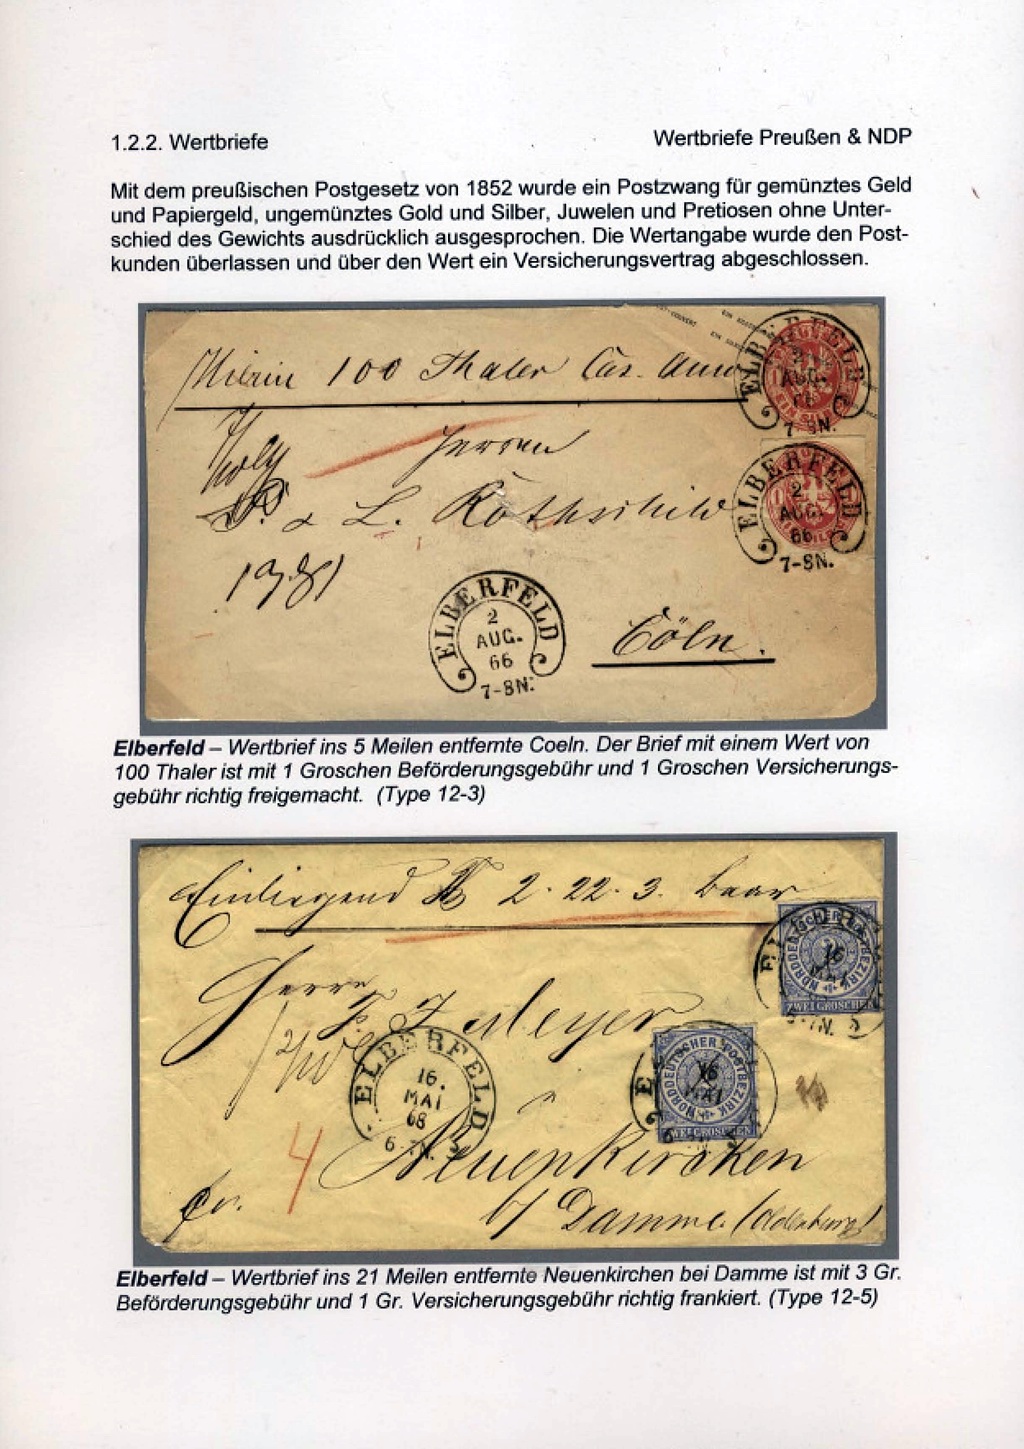 1.2.2. Wertbriefe
Wertbriefe Preußen & NDP
Mit dem preußischen Postgesetz von 1852 wurde ein Postzwang für gemünztes Geld
und Papiergeld, ungemünztes Gold und Silber, Juwelen und Pretiosen ohne Unter-
schied des Gewichts ausdrücklich ausgesprochen. Die Wertangabe wurde den Post-
kunden überlassen und über den Wert ein Versicherungsvertrag abgeschlossen.
Hierin 100 Thaler Cas. Anw
ELBERFELD
2
AUG.
66
7-8N.
Herren
ELBERFELD
2
AUG.
66
7-8N.
& L. Rothschild
ELBERFELD
2
AUG.
66
7-8N.
Cöln.
Elberfeld – Wertbrief ins 5 Meilen entfernte Coeln. Der Brief mit einem Wert von
100 Thaler ist mit 1 Groschen Beförderungsgebühr und 1 Groschen Versicherungs-
gebühr richtig freigemacht. (Type 12-3)
Einliegend 2. 22. 3. baar
NORDDEUTSCHER POSTBEZIRK
ZWEI GROSCHEN
16
MAI
Herrn
Meyer
NORDDEUTSCHER POSTBEZIRK
ZWEI GROSCHEN
16
MAI
ELBERFELD
16.
MAI
68
4
Neuenkirchen
b/ Damme (Oldenburg)
Elberfeld – Wertbrief ins 21 Meilen entfernte Neuenkirchen bei Damme ist mit 3 Gr.
Beförderungsgebühr und 1 Gr. Versicherungsgebühr richtig frankiert. (Type 12-5)